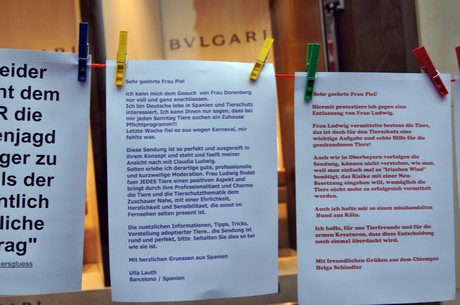 BVLGARI
eider
nt dem
R die
enjagd
ger zu
ls der
ntlich
liche
rag"
ersgluess
Sehr geehrte Frau Piel
ich kann mich dem Gesuch von Frau Dorenberg
nur voll und ganz anschliessen.
Ich bin Deutsche lebe in Spanien und Tierschutz
interessiert. Ich kann Ihnen nur sagen, dass bei
mir jeden Sonntag Tiere suchen ein Zuhause
Pflichtprogramm!!!
Letzte Woche fiel es aus wegen Karneval, mir
fehlte was.
Diese Sendung ist so perfekt und ausgereift in
ihrem Konzept und steht und faellt meiner
Ansicht nach mit Claudia Ludwig.
Selten erlebe ich derartige gute, professionelle
und kurzweilige Moderation. Frau Ludwig findet
fuer JEDES Tiere einen positiven Aspekt und
bringt durch ihre Professionalitaet und Charme
die Tiere und die Tierschutzthematik dem
Zuschauer Nahe, mit einer Ehrlichkeit,
Herzlichkeit und Sensibilitaet, die sonst im
Fernsehen selten praesent ist.
Die nuetzlichen Informationen, Tipps, Tricks,
Vorstellung adoptierter Tiere.. die Sendung ist
rund und perfekt, bitte behalten Sie dies so bei
wie sie ist.
Mit herzlichen Gruessen aus Spanien
Ulla Lauth
Barcelona / Spanien
Sehr geehrte Frau Piel!
Hiermit protestiere ich gegen eine
Entlassung von Frau Ludwig.
Frau Ludwig vermittelte bestens die Tiere,
das ist doch für den Tierschutz eine
wichtige Aufgabe und echte Hilfe für die
geschundenen Tiere!
Auch wir in Oberbayern verfolgen die
Sendung, können nicht verstehen, wie man,
weil man einfach mal so "frischen Wind"
benötigt, das Risiko mit einer Neu-
besetzung eingehen will, womöglich die
Tiere nicht mehr so erfolgreich vermittelt
werden.
Auch ich holte mir so einen misshandelten
Hund aus Köln.
Ich hoffe, für uns Tierfreunde und für die
armen Kreaturen, dass diese Entscheidung
noch einmal überdacht wird.
Mit freundlichen Grüßen aus dem Chiemgau
Helga Schindler